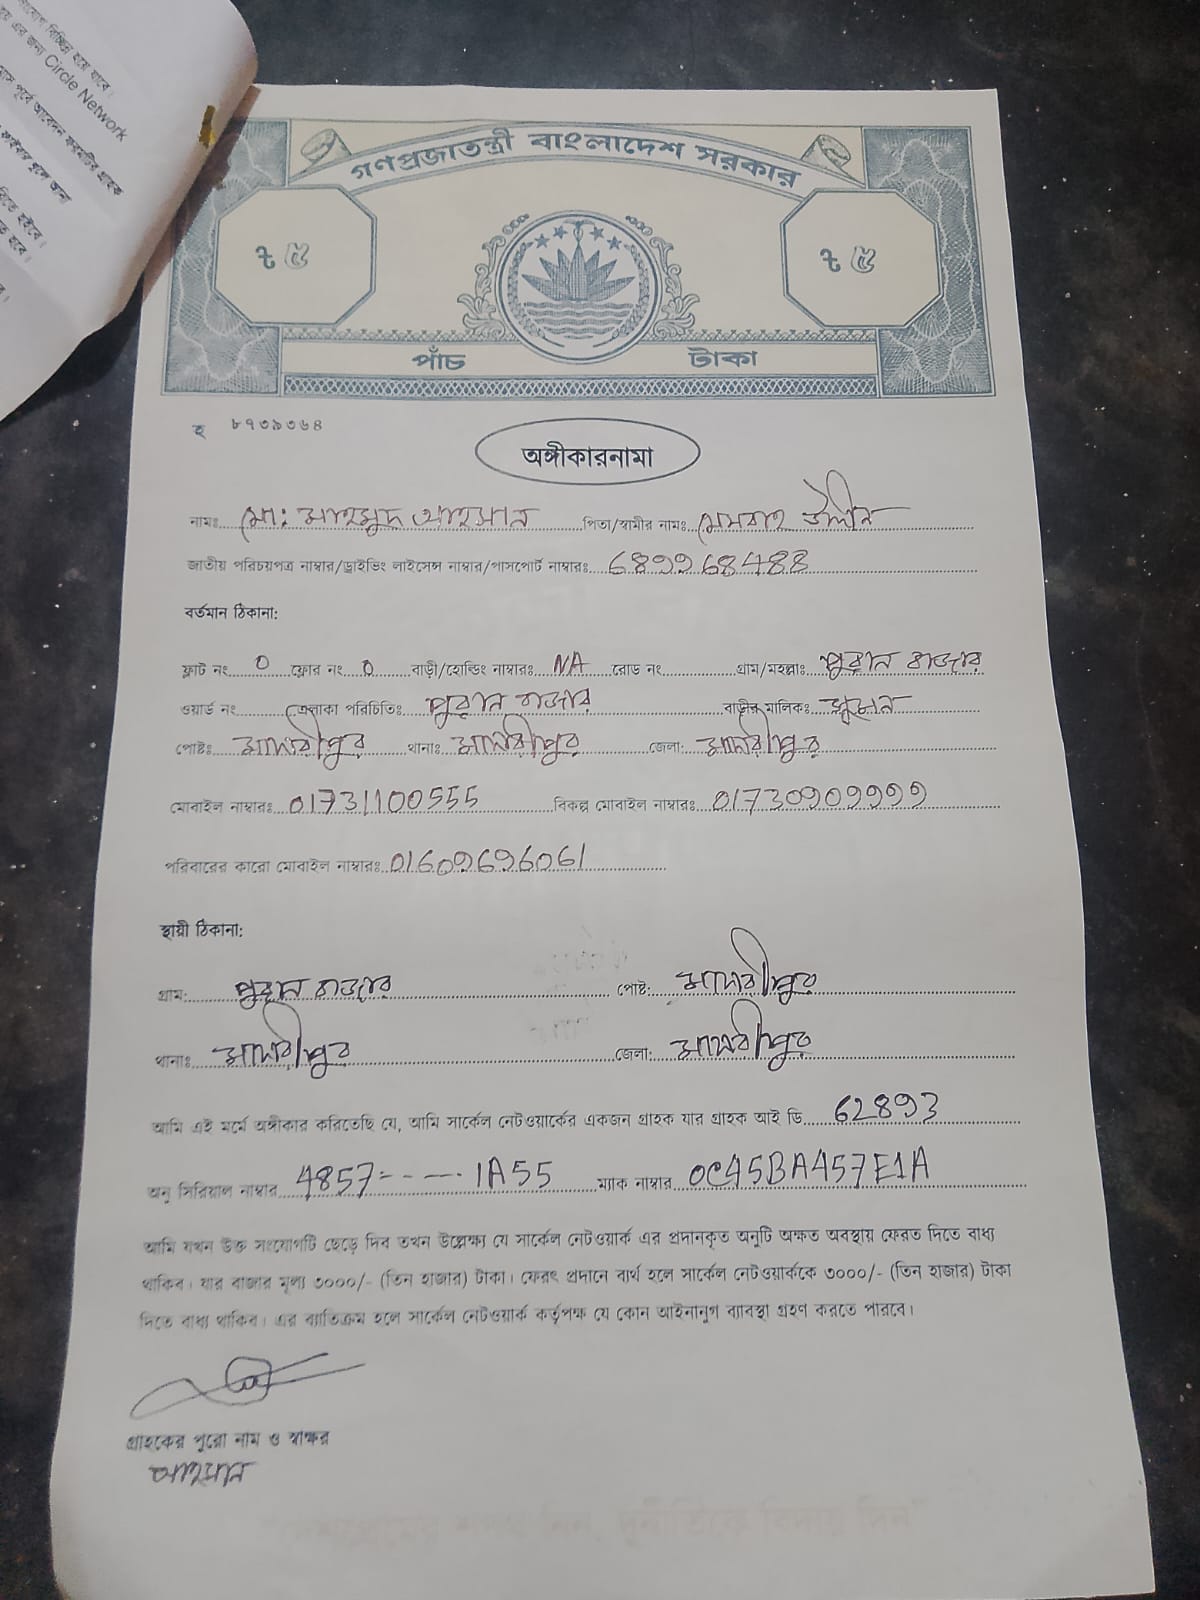 Circle Network
গণপ্রজাতন্ত্রী বাংলাদেশ সরকার
৳ ৫ ৳ ৫
পাঁচ টাকা
হ ৮৭৩৯৩৬৪
অঙ্গীকারনামা
নামঃ মো: মাহমুদ আহসান পিতা/স্বামীর নামঃ মেসবাহ উদ্দীন
জাতীয় পরিচয়পত্র নাম্বার/ড্রাইভিং লাইসেন্স নাম্বার/পাসপোর্ট নাম্বারঃ
বর্তমান ঠিকানা:
ফ্লাট নং 0 ফ্লোর নং 0 বাড়ী/হোল্ডিং নাম্বারঃ NA রোড নং গ্রাম/মহল্লাঃ পুরান বাজার
ওয়ার্ড নং এলাকা পরিচিতিঃ পুরান বাজার বাড়ীর মালিকঃ সুমন
পোষ্টঃ মাদারীপুর থানাঃ মাদারীপুর জেলা: মাদারীপুর
মোবাইল নাম্বারঃ 01731100555 বিকল্প মোবাইল নাম্বারঃ 01730909999
পরিবারের কারো মোবাইল নাম্বারঃ 01609696061
স্থায়ী ঠিকানা:
গ্রাম: পুরান বাজার পোষ্ট: মাদারীপুর
থানাঃ মাদারীপুর জেলা: মাদারীপুর
আমি এই মর্মে অঙ্গীকার করিতেছি যে, আমি সার্কেল নেটওয়ার্কের একজন গ্রাহক যার গ্রাহক আই ডি 62893
অনু সিরিয়াল নাম্বার 4857-----1A55 ম্যাক নাম্বার 0C45BA457E1A
আমি যখন উক্ত সংযোগটি ছেড়ে দিব তখন উল্লেক্ষ্য যে সার্কেল নেটওয়ার্ক এর প্রদানকৃত অনুটি অক্ষত অবস্থায় ফেরত দিতে বাধ্য
থাকিব। যার বাজার মূল্য ৩০০০/- (তিন হাজার) টাকা। ফেরৎ প্রদানে ব্যর্থ হলে সার্কেল নেটওয়ার্ককে ৩০০০/- (তিন হাজার) টাকা
দিতে বাধ্য থাকিব। এর ব্যাতিক্রম হলে সার্কেল নেটওয়ার্ক কর্তৃপক্ষ যে কোন আইনানুগ ব্যাবস্থা গ্রহণ করতে পারবে।
গ্রাহকের পুরো নাম ও স্বাক্ষর
আহসান